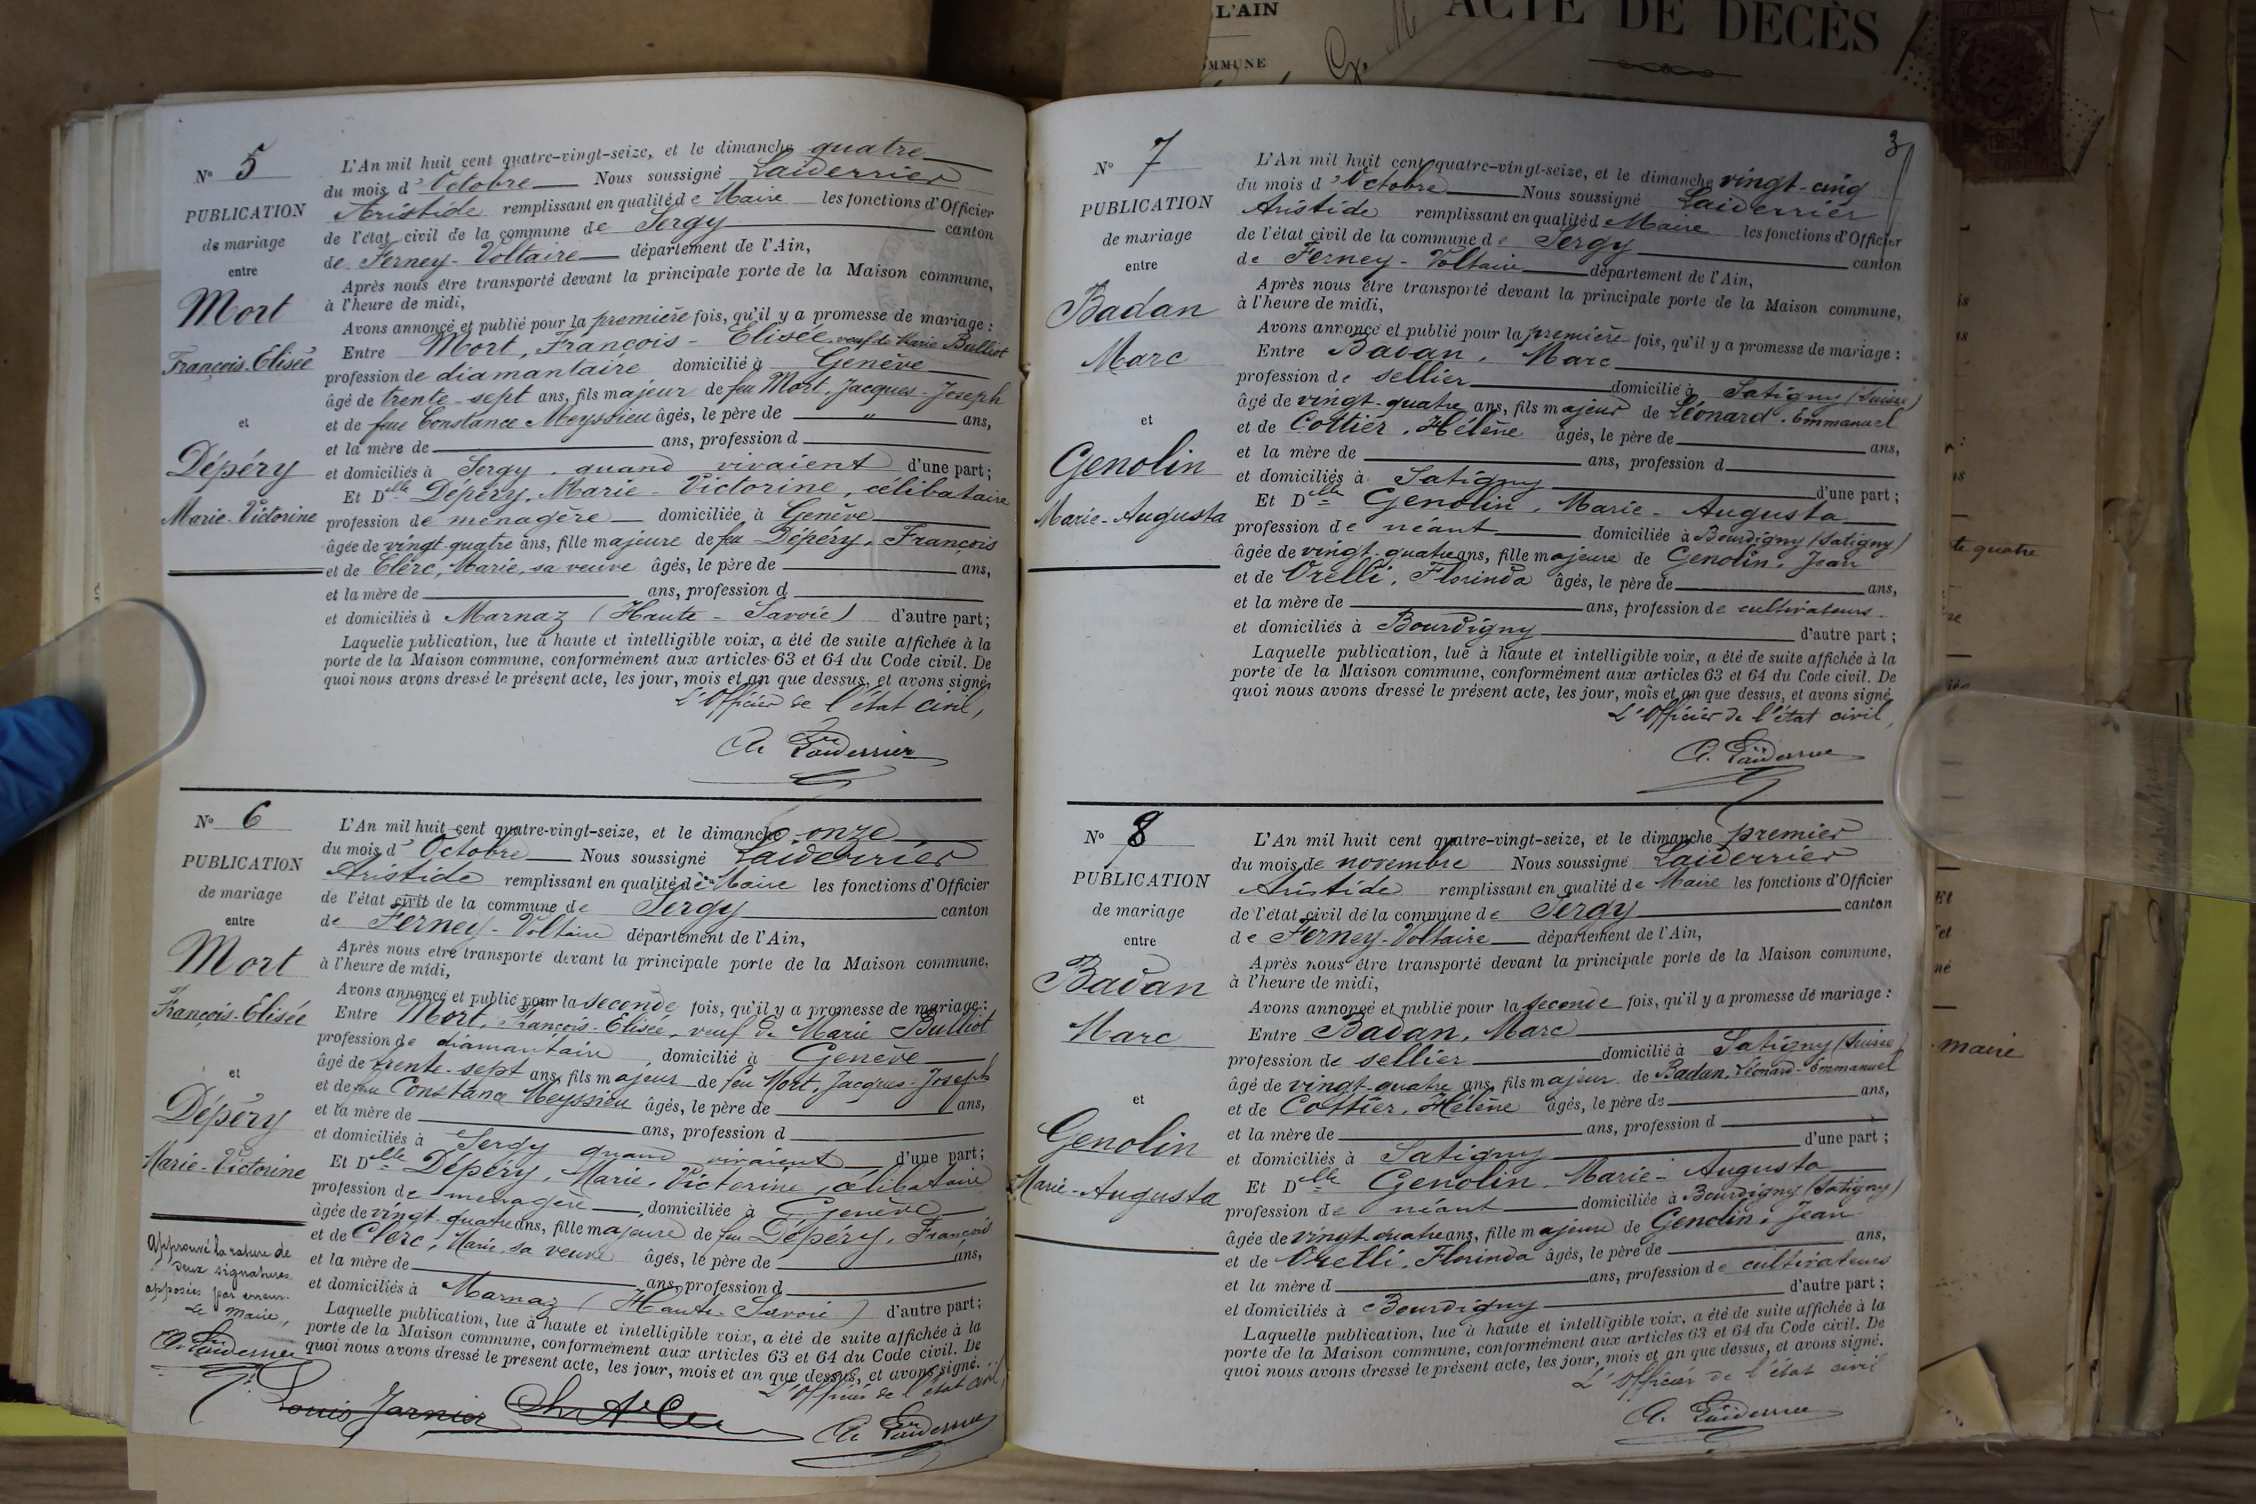 L'AIN
OMMUNE
ACTE DE DÉCÈS
N° 5
PUBLICATION
de mariage
entre
Mort
François-Elisée
et
Dépéry
Marie-Victorine
L'An mil huit cent quatre-vingt-seize, et le dimanche quatre
du mois d'Octobre Nous soussigné Laiderrier
Aristide remplissant en qualité de Maire les fonctions d'Officier
de l'état civil de la commune de Sergy canton
de Ferney-Voltaire département de l'Ain,
Après nous être transporté devant la principale porte de la Maison commune,
à l'heure de midi,
Avons annoncé et publié pour la première fois, qu'il y a promesse de mariage :
Entre Mort, François-Elisée, veuf de Marie Bulliot
profession de diamantaire domicilié à Genève
âgé de trente-sept ans, fils majeur de feu Mort, Jacques-Joseph
et de feue Constance Meyssieu âgés, le père de " ans,
et la mère de ans, profession d
et domiciliés à Sergy, quand vivaient d'une part;
Et Delle Dépéry, Marie-Victorine, célibataire
profession de ménagère domiciliée à Genève
âgée de vingt-quatre ans, fille majeure de feu Dépéry, François
et de Clerc, Marie, sa veuve âgés, le père de ans,
et la mère de ans, profession d
et domiciliés à Marnaz (Haute-Savoie) d'autre part;
Laquelle publication, lue à haute et intelligible voix, a été de suite affichée à la
porte de la Maison commune, conformément aux articles 63 et 64 du Code civil. De
quoi nous avons dressé le présent acte, les jour, mois et an que dessus, et avons signé.
L'Officier de l'état civil,
A. Laiderrier
N° 6
PUBLICATION
de mariage
entre
Mort
François-Elisée
et
Dépéry
Marie-Victorine
Approuvé la rature de
deux signatures
apposées par erreur.
Le Maire,
A. Laiderrier
L'An mil huit cent quatre-vingt-seize, et le dimanche onze
du mois d'Octobre Nous soussigné Laiderrier
Aristide remplissant en qualité de Maire les fonctions d'Officier
de l'état civil de la commune de Sergy canton
de Ferney-Voltaire département de l'Ain,
Après nous être transporté devant la principale porte de la Maison commune,
à l'heure de midi,
Avons annoncé et publié pour la seconde fois, qu'il y a promesse de mariage :
Entre Mort, François-Elisée, veuf de Marie Bulliot
profession de diamantaire, domicilié à Genève
âgé de trente-sept ans, fils majeur de feu Mort, Jacques-Joseph
et de feue Constance Meyssieu âgés, le père de ans,
et la mère de ans, profession d
et domiciliés à Sergy quand vivaient d'une part;
Et Delle Dépéry, Marie-Victorine, célibataire
profession de ménagère, domiciliée à Genève
âgée de vingt-quatre ans, fille majeure de feu Dépéry, François
et de Clerc, Marie, sa veuve âgés, le père de ans,
et la mère de ans, profession d
et domiciliés à Marnaz (Haute-Savoie) d'autre part;
Laquelle publication, lue à haute et intelligible voix, a été de suite affichée à la
porte de la Maison commune, conformément aux articles 63 et 64 du Code civil. De
quoi nous avons dressé le présent acte, les jour, mois et an que dessus, et avons signé.
L'Officier de l'état civil,
Louis Jarnier
A. Laiderrier
3
N° 7
PUBLICATION
de mariage
entre
Badan
Marc
et
Genolin
Marie-Augusta
L'An mil huit cent quatre-vingt-seize, et le dimanche vingt-cinq
du mois d'Octobre Nous soussigné Laiderrier
Aristide remplissant en qualité de Maire les fonctions d'Officier
de l'état civil de la commune de Sergy
de Ferney-Voltaire canton
département de l'Ain,
Après nous être transporté devant la principale porte de la Maison commune,
à l'heure de midi,
Avons annoncé et publié pour la première fois, qu'il y a promesse de mariage :
Entre Badan, Marc
profession de sellier domicilié à Satigny (Suisse)
âgé de vingt-quatre ans, fils majeur de Léonard-Emmanuel
et de Cottier, Hélène âgés, le père de ans,
et la mère de ans, profession d
et domiciliés à Satigny d'une part;
Et Delle Genolin, Marie-Augusta
profession de néant domiciliée à Bourdigny (Satigny)
âgée de vingt-quatre ans, fille majeure de Genolin, Jean
et de Orelli, Florinda âgés, le père de ans,
et la mère de ans, profession de cultivateurs
et domiciliés à Bourdigny d'autre part;
Laquelle publication, lue à haute et intelligible voix, a été de suite affichée à la
porte de la Maison commune, conformément aux articles 63 et 64 du Code civil. De
quoi nous avons dressé le présent acte, les jour, mois et an que dessus, et avons signé.
L'Officier de l'état civil,
A. Laiderrier
N° 8
PUBLICATION
de mariage
entre
Badan
Marc
et
Genolin
Marie-Augusta
L'An mil huit cent quatre-vingt-seize, et le dimanche premier
du mois de novembre Nous soussigné Laiderrier
Aristide remplissant en qualité de Maire les fonctions d'Officier
de l'état civil de la commune de Sergy canton
de Ferney-Voltaire département de l'Ain,
Après nous être transporté devant la principale porte de la Maison commune,
à l'heure de midi,
Avons annoncé et publié pour la seconde fois, qu'il y a promesse de mariage :
Entre Badan, Marc
profession de sellier domicilié à Satigny (Suisse)
âgé de vingt-quatre ans, fils majeur de Badan, Léonard-Emmanuel
et de Cottier, Hélène âgés, le père de ans,
et la mère de ans, profession d
et domiciliés à Satigny d'une part;
Et Delle Genolin, Marie-Augusta
profession de néant domiciliée à Bourdigny (Satigny)
âgée de vingt-quatre ans, fille majeure de Genolin, Jean
et de Orelli, Florinda âgés, le père de ans,
et la mère d ans, profession de cultivateurs
et domiciliés à Bourdigny d'autre part;
Laquelle publication, lue à haute et intelligible voix, a été de suite affichée à la
porte de la Maison commune, conformément aux articles 63 et 64 du Code civil. De
quoi nous avons dressé le présent acte, les jour, mois et an que dessus, et avons signé.
L'Officier de l'état civil
A. Laiderrier
quatre
maire